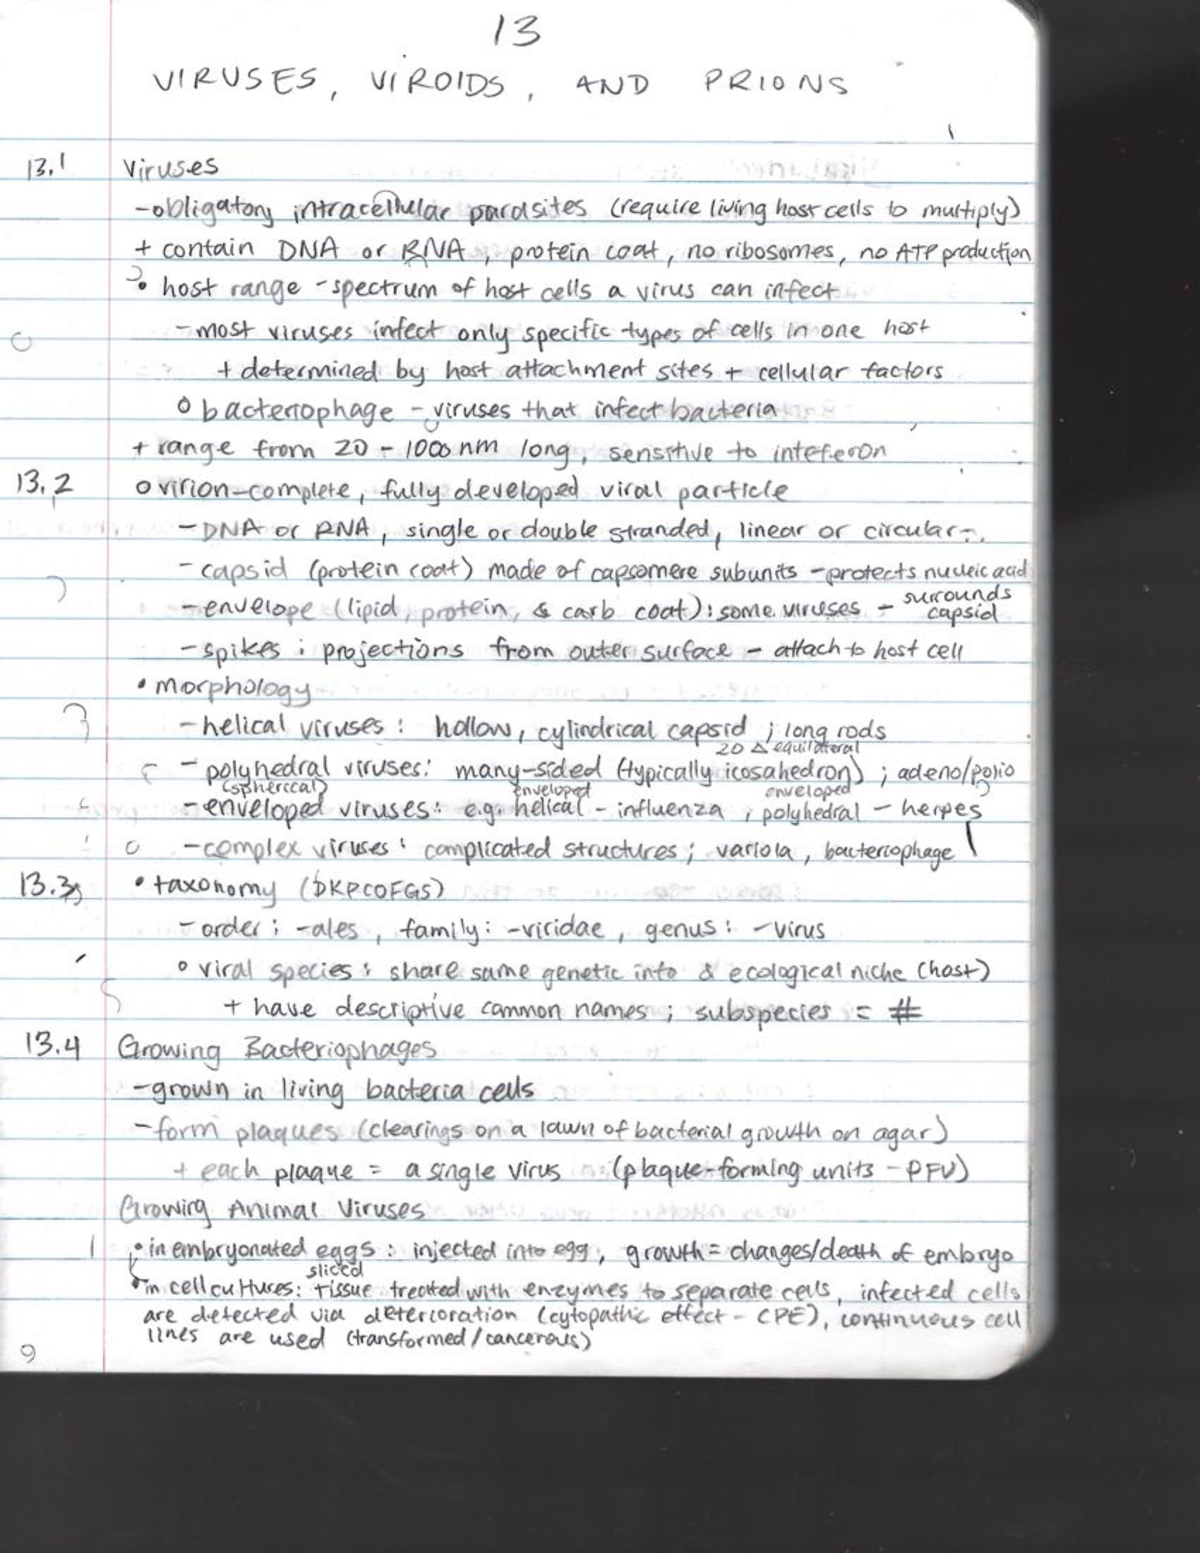 13
VIRUSES, VIROIDS, AND PRIONS
13.1 Viruses
-obligatory intracellular parasites (require living host cells to multiply)
+ contain DNA or RNA, protein coat, no ribosomes, no ATP production
• host range - spectrum of host cells a virus can infect
- most viruses infect only specific types of cells in one host
+ determined by host attachment sites + cellular factors
o bacteriophage - viruses that infect bacteria
+ range from 20 - 1000 nm long, sensitive to inteferon
13.2 o virion-complete, fully developed viral particle
- DNA or RNA, single or double stranded, linear or circular
- capsid (protein coat) made of capsomere subunits - protects nucleic acid
- envelope (lipid, protein, & carb coat): some viruses - surrounds capsid
- spikes: projections from outer surface - attach to host cell
• morphology
- helical viruses: hollow, cylindrical capsid; long rods
20 △ equilateral
- polyhedral viruses: many-sided (typically icosahedron); adeno/polio
(spherical) enveloped enveloped
- enveloped viruses: e.g. helical - influenza, polyhedral - herpes
- complex viruses: complicated structures; variola, bacteriophage
13.3 • taxonomy (DKPCOFGS)
- order: -ales, family: -viridae, genus: -virus
o viral species: share same genetic info & ecological niche (host)
+ have descriptive common names; subspecies = #
13.4 Growing Bacteriophages
- grown in living bacteria cells
- form plaques (clearings on a lawn of bacterial growth on agar)
+ each plaque = a single virus (plaque-forming units - PFU)
Growing Animal Viruses
• in embryonated eggs: injected into egg, growth = changes/death of embryo
sliced
• in cell cultures: tissue treated with enzymes to separate cells, infected cells
are detected via deterioration (cytopathic effect - CPE), continuous cell
lines are used (transformed/cancerous)